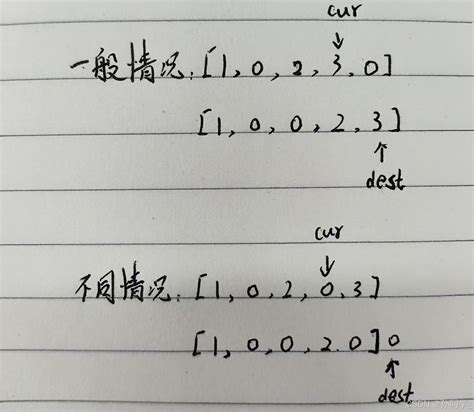 cur
↓
一般情况:[1,0,2,3,0]
[1,0,0,2,3]
↑
dest
cur
↓
不同情况:[1,0,2,0,3]
[1,0,0,2.0]0
↑
dest